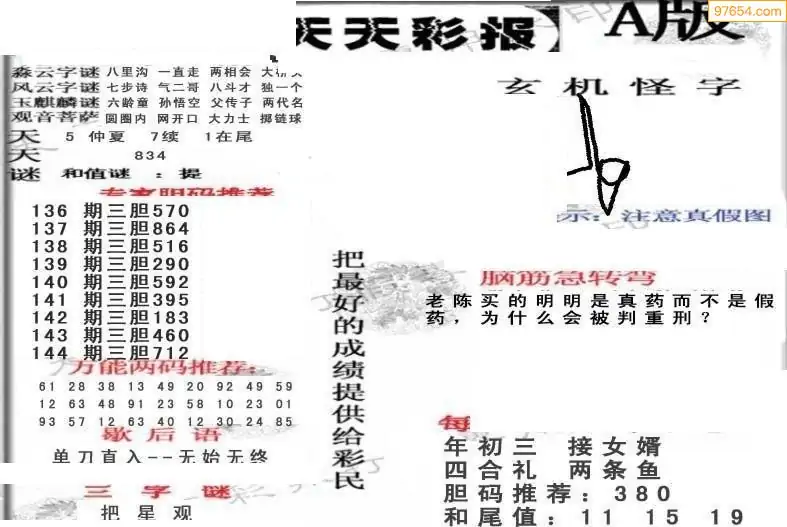 97654.com
天天彩报
A版
森云字谜 八里沟 一直走 两相会
风云字谜 七步诗 气二哥 八斗才 独一个
玉麒麟谜 六龄童 孙悟空 父传子 两代名
观音菩萨 圆圈内 网开口 大力士 掷链球
天 5 仲夏 7续 1在尾
天 834
谜 和值谜 : 提
专家胆码推荐
136 期三胆570
137 期三胆864
138 期三胆516
139 期三胆290
140 期三胆592
141 期三胆395
142 期三胆183
143 期三胆460
144 期三胆712
万能两码推荐:
61 28 38 13 49 20 92 49 59
12 63 48 91 23 58 10 23 01
93 57 12 63 40 12 30 24 85
歇后语
单刀直入--无始无终
三字谜
把星观
把最好的成绩提供给彩民
玄机怪字
示: 注意真假图
脑筋急转弯
老陈买的明明是真药而不是假
药，为什么会被判重刑？
每
年初三 接女婿
四合礼 两条鱼
胆码推荐: 380
和尾值: 11 15 19